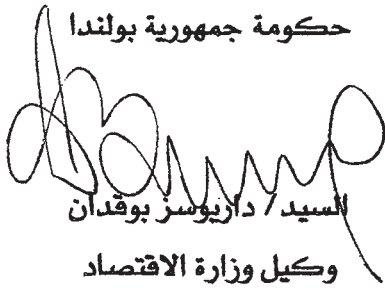 حكومة جمهورية بولندا
السيد/ داريوسز بوقدان
وكيل وزارة الاقتصاد